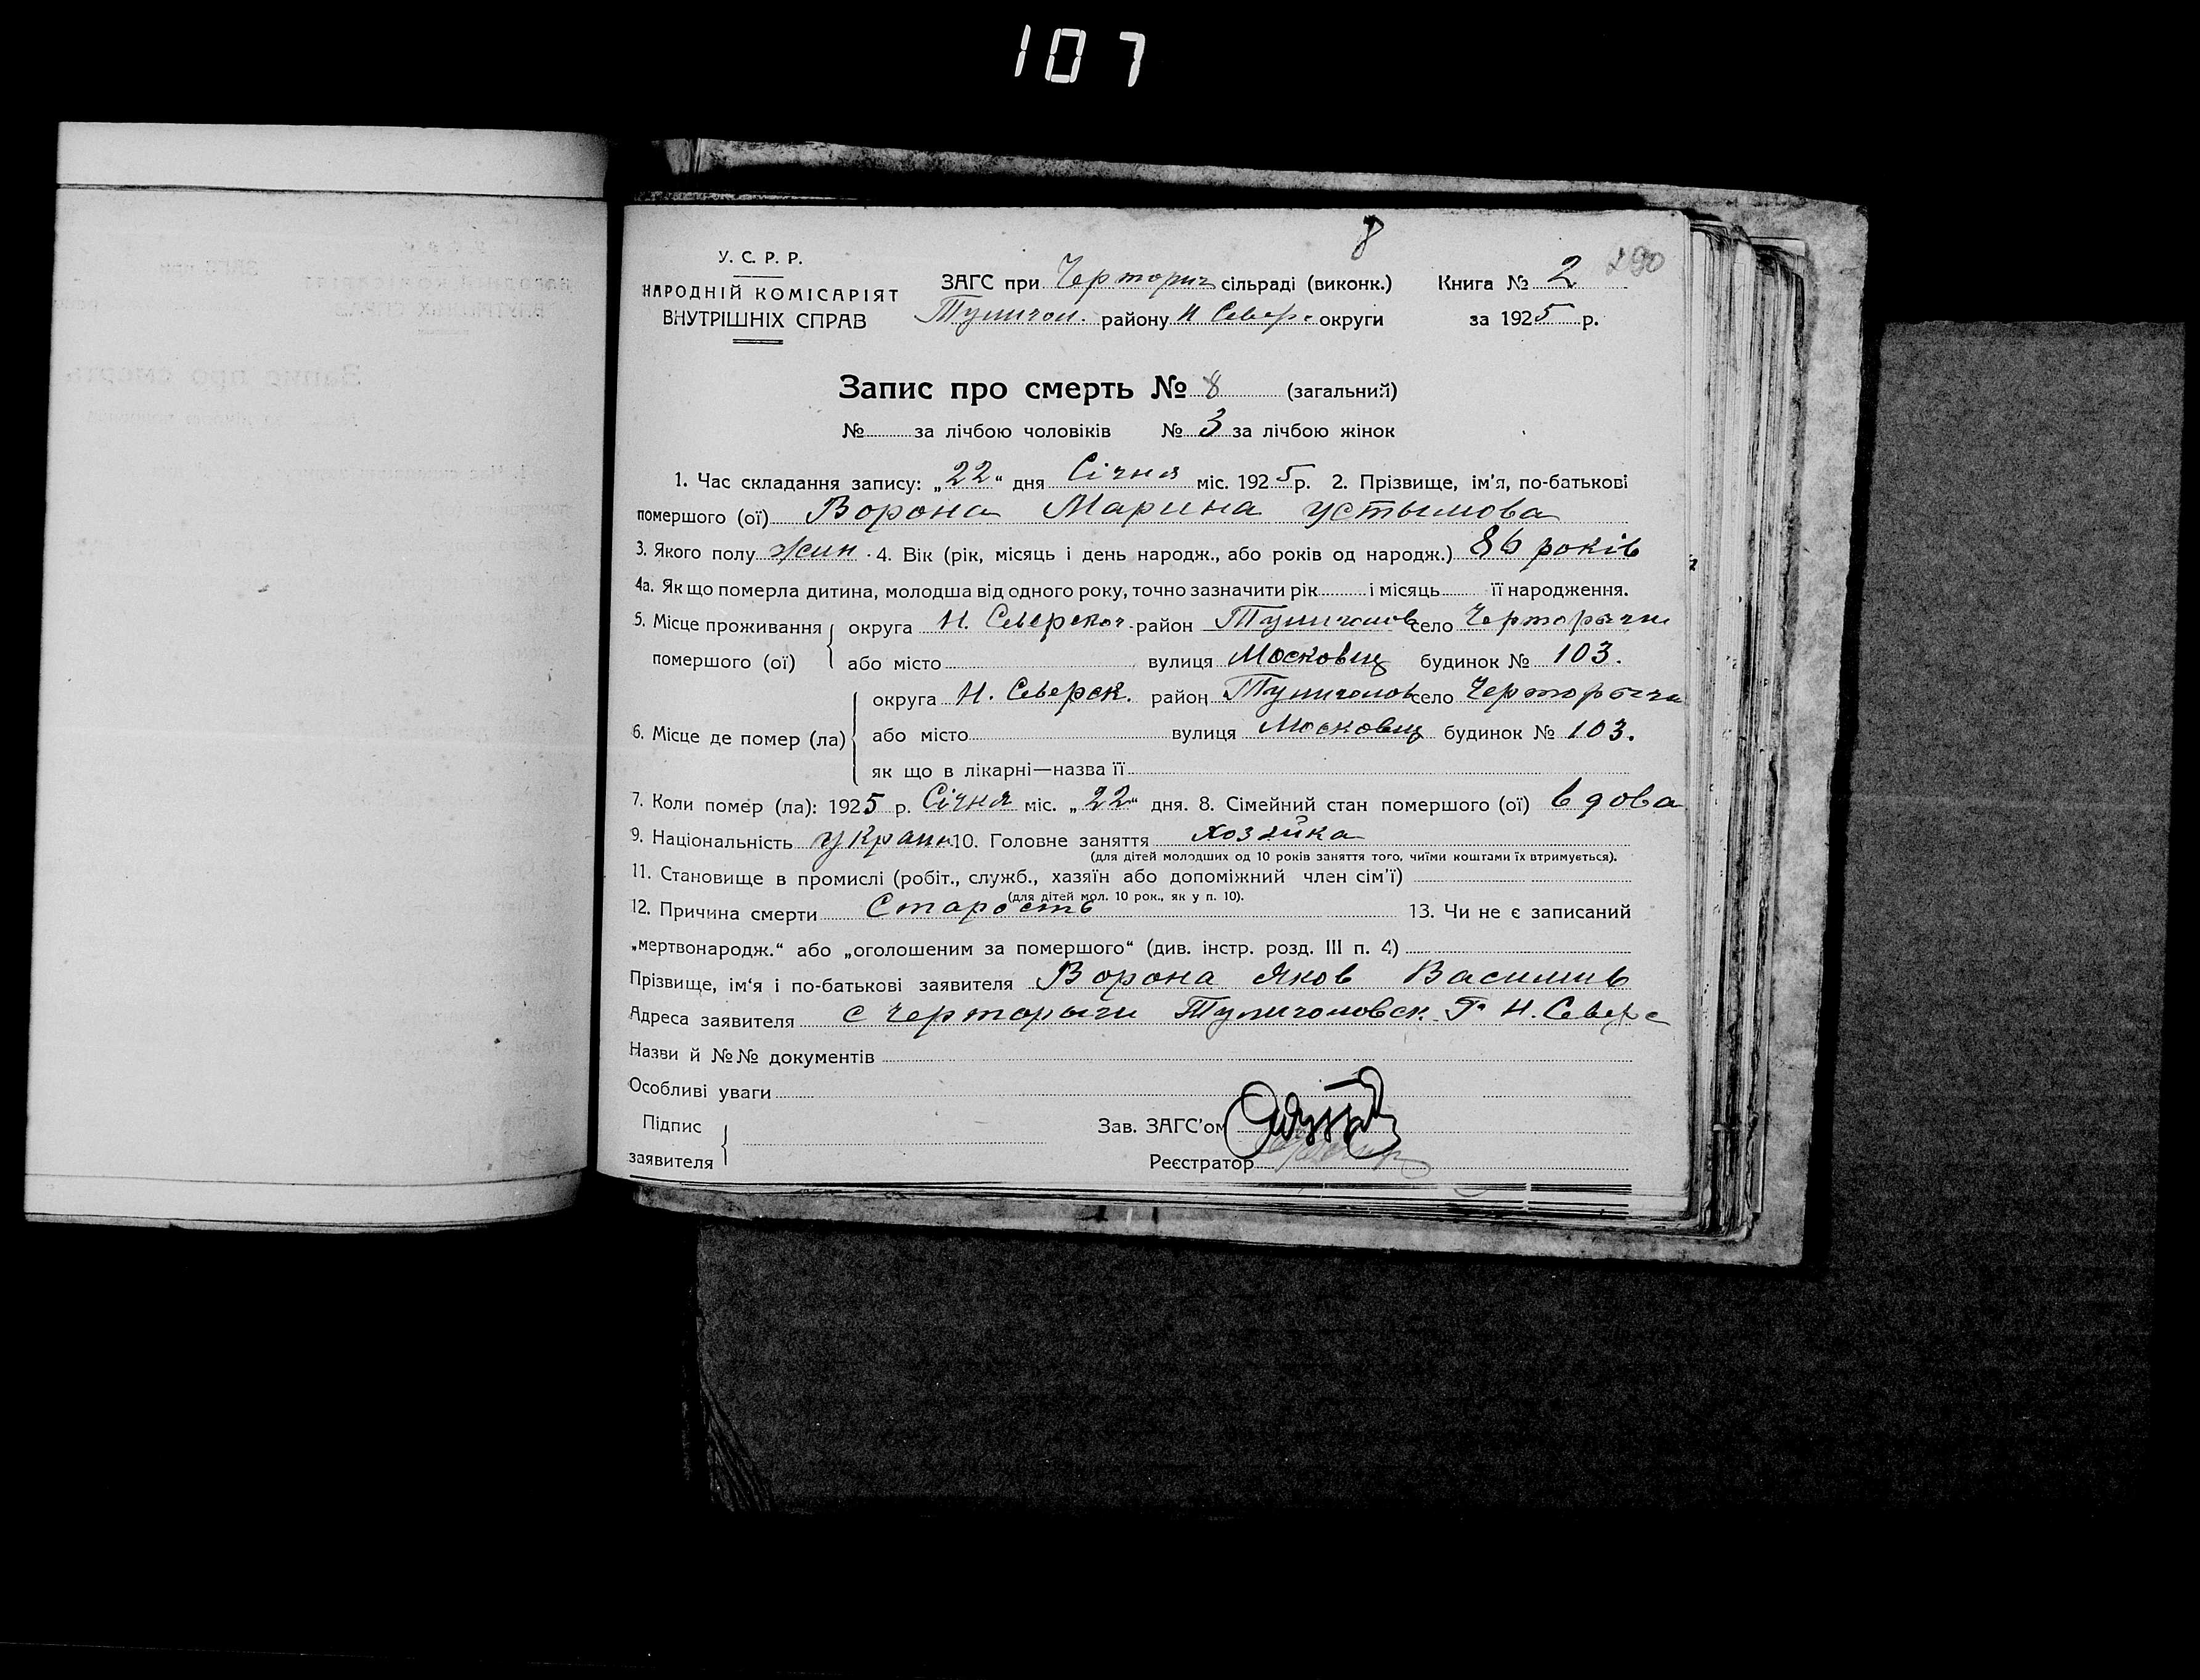 107
8
У. С. Р. Р.
НАРОДНІЙ КОМІСАРІЯТ
ВНУТРІШНІХ СПРАВ
ЗАГС при Черторич сільраді (виконк.) Книга № 2 290
Тулигол. району Н Северс округи за 1925 р.
Запис про смерть № 8 (загальний)
№ за лічбою чоловіків № 3 за лічбою жінок
1. Час складання запису: „22“ дня Січня міс. 1925 р. 2. Прізвище, ім'я, по-батькові
помершого (ої) Ворона Марина Устымова
3. Якого полу жин. 4. Вік (рік, місяць і день народж., або років од народж.) 86 років
4а. Як що померла дитина, молодша від одного року, точно зазначити рік і місяць її народження.
5. Місце проживання помершого (ої) округа Н. Северског район Тулиголов село Черторыги
або місто вулиця Московщ будинок № 103.
6. Місце де помер (ла) округа Н. Северск. район Тулиголов село Черторыги
або місто вулиця Московщ будинок № 103.
як що в лікарні—назва її
7. Коли помер (ла): 1925 р. Січня міс. „22“ дня. 8. Сімейний стан помершого (ої) вдова
9. Національність украин 10. Головне заняття хозяйка
(для дітей молодших од 10 років заняття того, чиїми коштами їх втримується).
11. Становище в промислі (робіт., служб., хазяїн або допоміжний член сім'ї)
(для дітей мол. 10 рок., як у п. 10).
12. Причина смерти Старость 13. Чи не є записаний
„мертвонародж.“ або „оголошеним за помершого“ (див. інстр. розд. III п. 4)
Прізвище, ім'я і по-батькові заявителя Ворона Яков Василив
Адреса заявителя с Черторыги Тулиголовск. Р. Н. Северс
Назви й №№ документів
Особливі уваги
Підпис
заявителя
Зав. ЗАГС'ом
Реєстратор